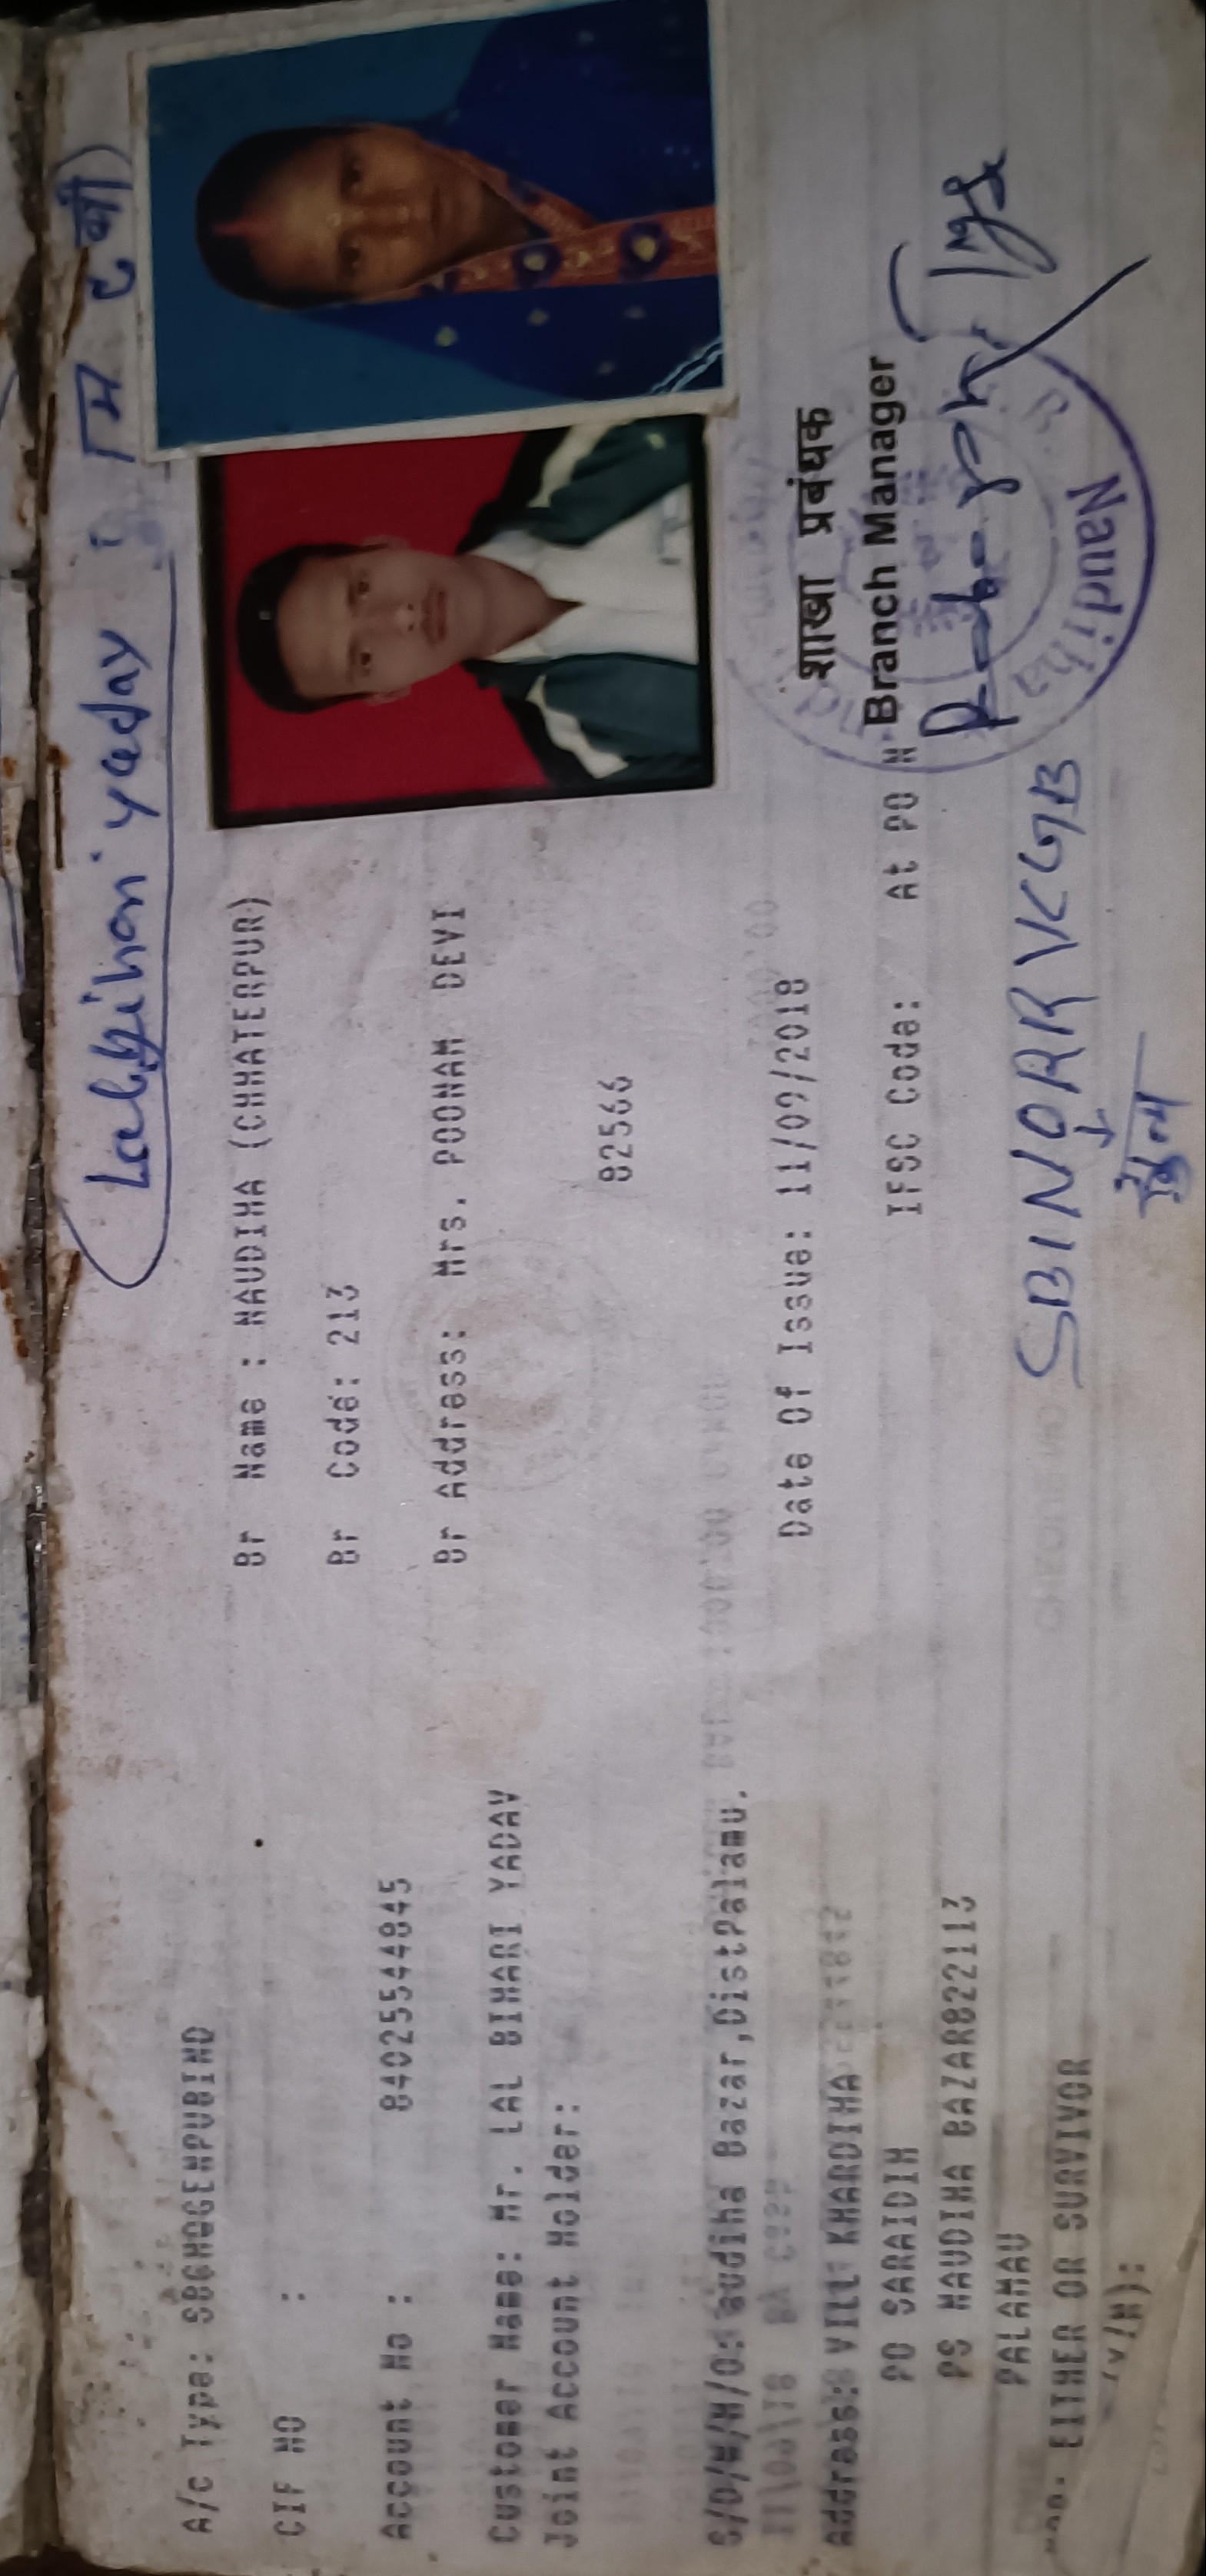 Lalbihari yadav
A/c Type: SBGHQGENPUBIND
Br Name : NAUDIHA (CHHATERPUR)
CIF NO :
Br Code: 213
Account No : 84025544845
Br Address: Mrs. POONAM DEVI
Customer Name: Mr. LAL BIHARI YADAV
Joint Account Holder:
82566
S/D/W/H/O: audiha Bazar,DistPalamu.
Date Of Issue: 11/09/2018
शाखा प्रबंधक
Address: VILL KHARDIHA
PO SARAIDIH
IFSC Code: At PO N
Branch Manager
PS NAUDIHA BAZAR822113
PALAMAU
SBINORRVCGB
Naudiha
EITHER OR SURVIVOR
(Y/N):